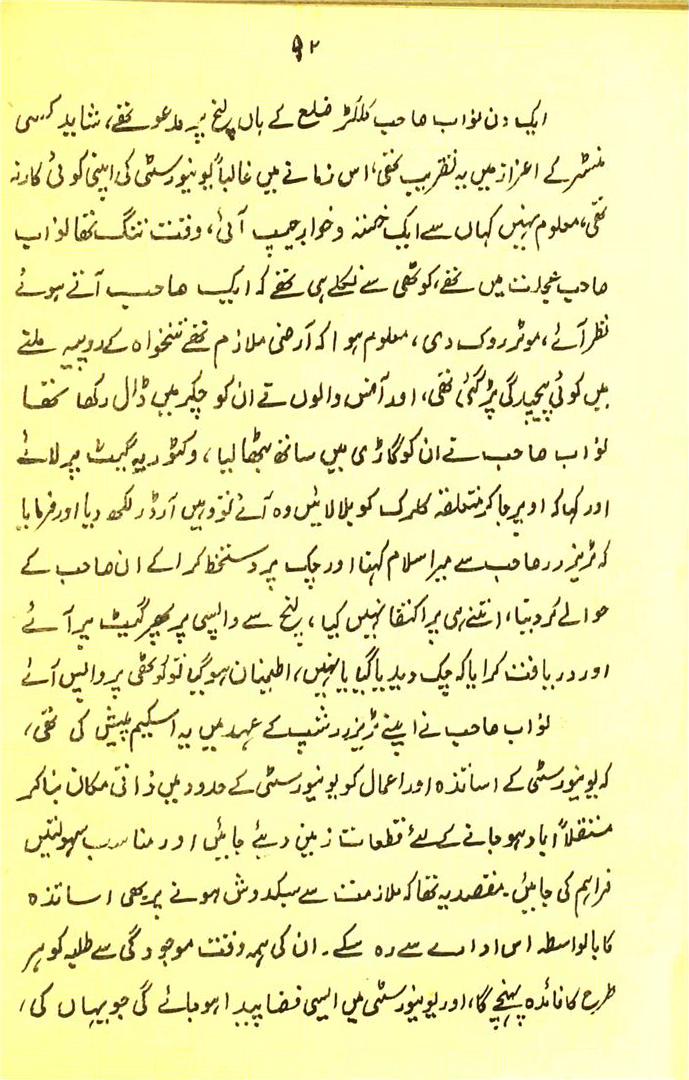 ۹۲
ایک دن نواب صاحب کلکٹر ضلع کے ہاں لنچ پر مدعو تھے، شاید کسی
منسٹر کے اعزاز میں یہ تقریب تھی، اس زمانے میں غالباً یونیورسٹی کی اپنی کوئی کار نہ
تھی، معلوم نہیں کہاں سے ایک خستہ و خوار جیپ آئی، وقت تنگ تھا نواب
صاحب عجلت میں تھے، کوٹھی سے نکلے ہی تھے کہ ایک صاحب آتے ہوئے
نظر آئے، موٹر روک دی، معلوم ہوا کہ آرضی ملازم تھے تنخواہ کے روپیہ ملنے
میں کوئی پیچیدگی پڑ گئی تھی، اور آفس والوں نے ان کو چکر میں ڈال رکھا تھا
نواب صاحب نے ان کو گاڑی میں ساتھ بٹھا لیا، وکٹوریہ گیٹ پر لائے
اور کہا کہ اوپر جا کر متعلقہ کلرک کو بلا لائیں وہ آئے تو وہیں آرڈر لکھ دیا اور فرمایا
کہ ٹریزرر صاحب سے میرا سلام کہنا اور چک پر دستخط کرا کے ان صاحب کے
حوالے کر دینا، اتنے ہی پر اکتفا نہیں کیا، لنچ سے واپسی پر پھر گیٹ پر آئے
اور دریافت کرایا کہ چک دیدیا گیا یا نہیں، اطمینان ہو گیا تو کوٹھی پر واپس آئے
نواب صاحب نے اپنے ٹریزررشپ کے عہد میں یہ اسکیم پیش کی تھی،
کہ یونیورسٹی کے اساتذہ اور اعمال کو یونیورسٹی کے حدود میں ذاتی مکان بنا کر
مستقلاً آباد ہو جانے کے لئے قطعات زمین دیئے جائیں اور مناسب سہولتیں
فراہم کی جائیں۔ مقصد یہ تھا کہ ملازمت سے سبکدوش ہونے پر بھی اساتذہ
کا بالواسطہ اس ادارے سے رہ سکے۔ ان کی ہمہ وقت موجودگی سے طلبہ کو ہر
طرح کا فائدہ پہنچے گا، اور یونیورسٹی میں ایسی فضا پیدا ہو جائے گی جو یہاں کی،